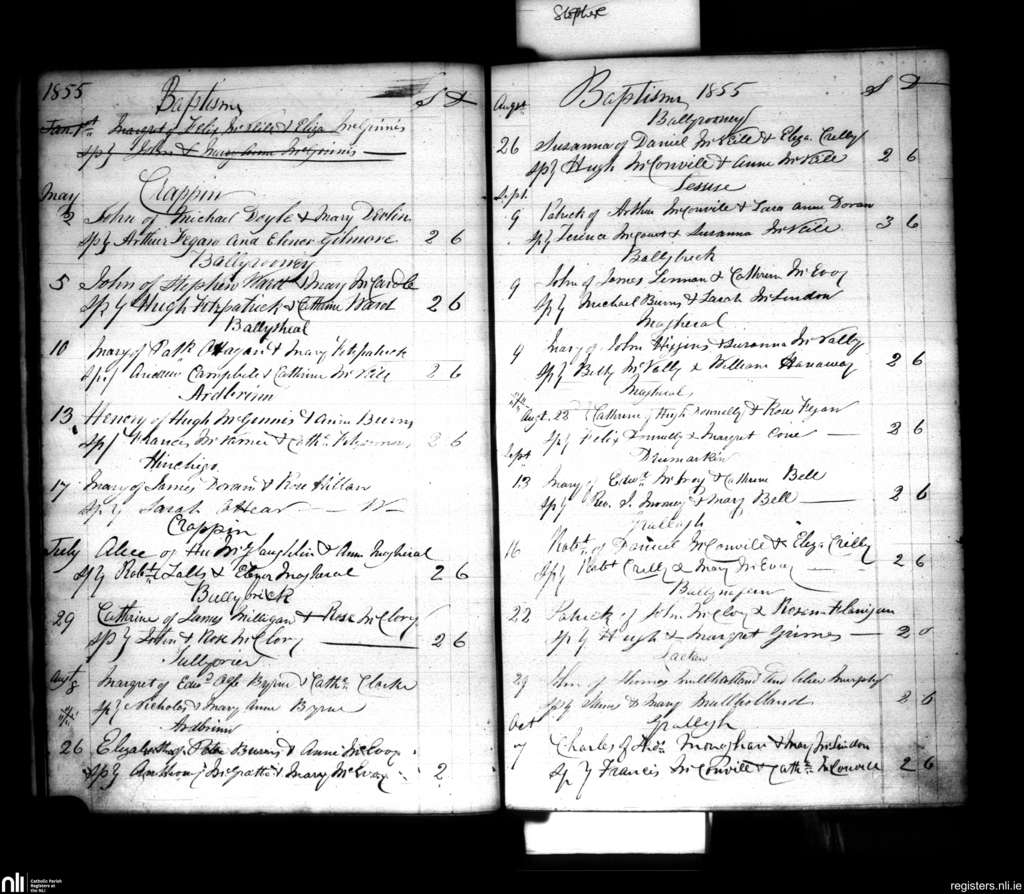 Stopher
1855 Baptisms S D
Jan 1st Margret of Felix McVille & Eliza McGinnis
Sps John & Mary Anne McGinnis
Crappin
May
2 John of Michael Doyle & Mary Devlin
Sps Arthur Fegan and Elenor Gilmore 2 6
Ballyrooney
5 John of Stephen Ward & Mary McCardle
Sps Hugh Fitzpatrick & Cathrine Ward 2 6
Ballysheal
10 Mary of Patk O'Hagan & Mary Fitzpatrick
Sps Andrew Campbell & Cathrine McVile 2 6
Ardbrinn
13 Henery of Hugh McGennis & Ann Burns
Sps Francis & Cathn 2 6
Hinchigo
17 Mary of James Doran & Rose Killan
Sps Sarah O'Hear
Crappin
July Alice of Hu McGlaughlin & Ann Magheral
Sps Robt Falls & Elenor Magheral 2 6
Ballybrick
29 Cathrine of James Milligan & Rose McClory
Sps John & Rose McClory 2 6
Tullyorier
Augt
8 Margret of Edwd Byrne & Cathn Clarke
Sps Nicholas & Mary Anne Byrne
Ardbrinn
26 Elizabeth of Peter Burns & Anne McEvoy
Sps Anthony McGrattn & Mary McEvoy 2
Augst Baptisms 1855 S D
Ballyrooney
26 Susanna of Daniel McVile & Eliza Crilly
Sps Hugh McConville & Anne McVile 2 6
Lessise
Sept.
9 Patrick of Arthur McConvile & Sara Anne Doran
Sps Terence McCourt & Susanna McVile 3 6
Ballybrick
9 John of James Lennan & Cathrin McEvoy
Sps Michael Burns & Sarah McLindon
Magheral
9 Mary of John Higgins & Susanna McNally
Sps Betty McNally & William Hanaway 2 6
Magheral
Augt. 28 Cathrine of Hugh Donnelly & Rose Fegan
Sps Felix Donnelly & Margret 2 6
Sept Drumarkin
13 Mary of Edwd McEvoy & Cathrin Bell
Sps Rev. J. Mooney & Mary Bell 2 6
Grallagh
16 Robt of Daniel McConvile & Eliza Crilly
Sps Robt Crilly & Mary McEvoy 2 6
Ballynafern
22 Patrick of John McCloy & Rosean Flanigan
Sps Hugh & Margret Grimes 2 0
Lackan
29 John of Thomas Mullholland and Alice Murphy
Sps James & Mary Mullholland 2 6
Oct Grallagh
7 Charles of Monaghan & Mary McLindon
Sps Francis McConvile & Cathn McConvile 2 6
nli Catholic Parish
Registers at
the NLI
registers.nli.ie